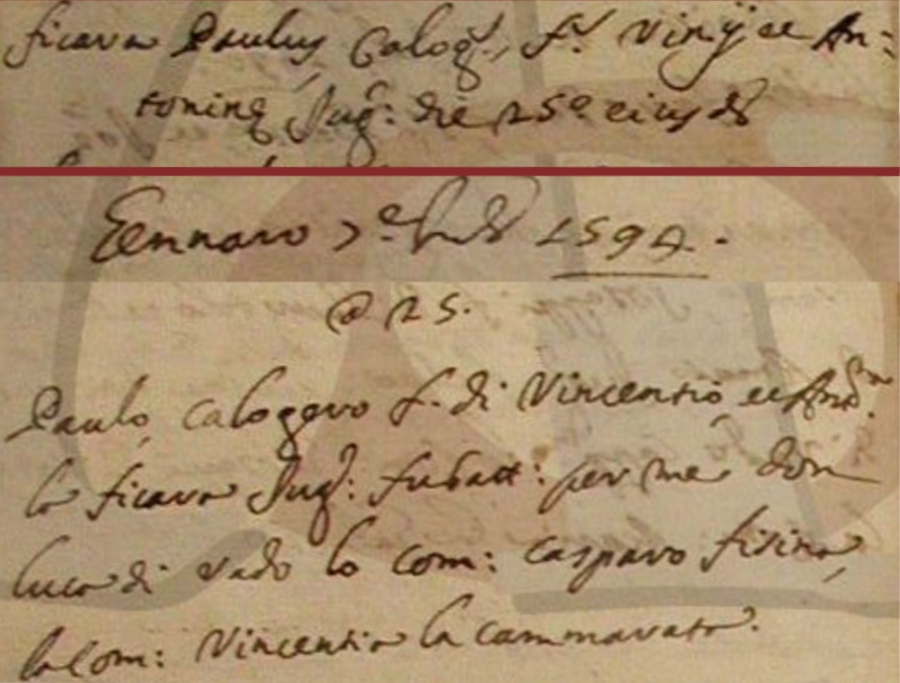 ficara Paulus Calog: f. Vinÿ et An=
tonine Jug: die 25º eiusd
Gennaro 7e Ind 1594.
@ 25.
Paulo calogero f. di Vincentio et Ant.
la ficara Jug: fu batt: per me don
luca di vado lo com: casparo
la Com: Vincentia la cammarata.